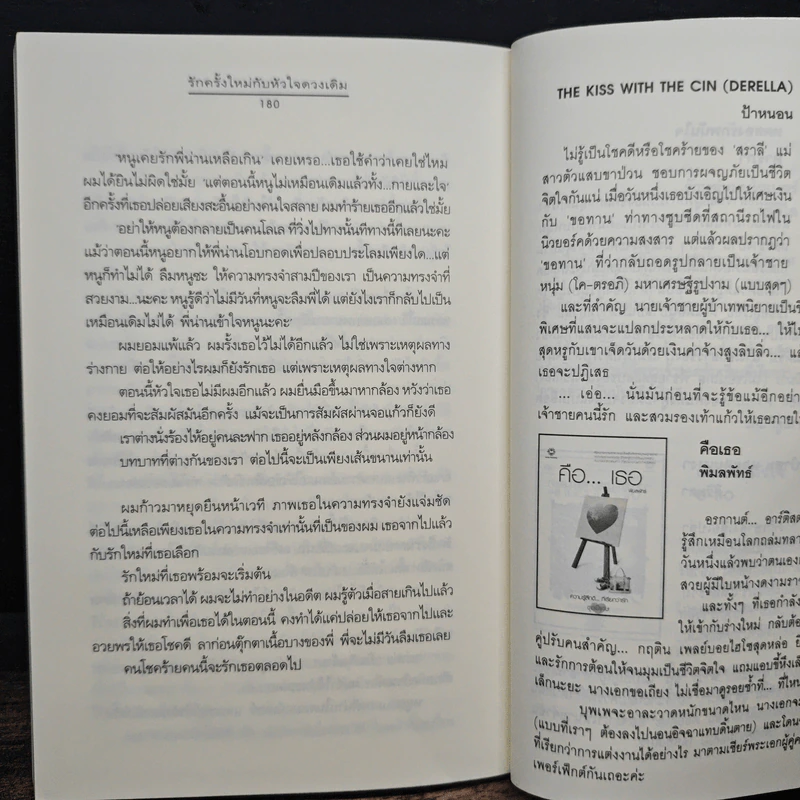 รักครั้งใหม่กับหัวใจดวงเดิม
180
'หนูเคยรักพี่น่านเหลือเกิน' เคยเหรอ...เธอใช้คำว่าเคยใช่ไหม
ผมได้ยินไม่ผิดใช่มั้ย 'แต่ตอนนี้หนูไม่เหมือนเดิมแล้วทั้ง...กายและใจ'
อีกครั้งที่เธอปล่อยเสียงสะอื้นอย่างคนใจสลาย ผมทำร้ายเธออีกแล้วใช่มั้ย
'อย่าให้หนูต้องกลายเป็นคนโลเล ที่วิ่งไปทางนั้นทีทางนี้ทีเลยนะคะ
แม้ว่าตอนนี้หนูอยากให้พี่น่านโอบกอดเพื่อปลอบประโลมเพียงใด...แต่
หนูก็ทำไม่ได้ ลืมหนูซะ ให้ความทรงจำสามปีของเรา เป็นความทรงจำที่
สวยงาม...นะคะ หนูรู้ดีว่าไม่มีวันที่หนูจะลืมพี่ได้ แต่ยังไงเราก็กลับไปเป็น
เหมือนเดิมไม่ได้ พี่น่านเข้าใจหนูนะคะ'
ผมยอมแพ้แล้ว ผมรั้งเธอไว้ไม่ได้อีกแล้ว ไม่ใช่เพราะเหตุผลทาง
ร่างกาย ต่อให้อย่างไรผมก็ยังรักเธอ แต่เพราะเหตุผลทางใจต่างหาก
ตอนนี้หัวใจเธอไม่มีผมอีกแล้ว ผมยื่นมือขึ้นมาหากล้อง หวังว่าเธอ
คงยอมที่จะสัมผัสมันอีกครั้ง แม้จะเป็นการสัมผัสผ่านจอแก้วก็ยังดี
เราต่างนั่งร้องไห้อยู่คนละฟาก เธออยู่หลังกล้อง ส่วนผมอยู่หน้ากล้อง
บทบาทที่ต่างกันของเรา ต่อไปนี้จะเป็นเพียงเส้นขนานเท่านั้น
ผมก้าวมาหยุดยืนหน้าเวที ภาพเธอในความทรงจำยังแจ่มชัด
ต่อไปนี้เหลือเพียงเธอในความทรงจำเท่านั้นที่เป็นของผม เธอจากไปแล้ว
กับรักใหม่ที่เธอเลือก
รักใหม่ที่เธอพร้อมจะเริ่มต้น
ถ้าย้อนเวลาได้ ผมจะไม่ทำอย่างในอดีต ผมรู้ตัวเมื่อสายเกินไปแล้ว
สิ่งที่ผมทำเพื่อเธอได้ในตอนนี้ คงทำได้แค่ปล่อยให้เธอจากไปและ
อวยพรให้เธอโชคดี ลาก่อนตุ๊กตาเนื้อบางของพี่ พี่จะไม่มีวันลืมเธอเลย
คนโชคร้ายคนนี้จะรักเธอตลอดไป
THE KISS WITH THE CIN (DERELLA)
ป้าหนอน
ไม่รู้เป็นโชคดีหรือโชคร้ายของ 'สราลี' แม่
สาวตัวแสบขาป่วน ชอบการผจญภัยเป็นชีวิต
จิตใจกันแน่ เมื่อวันหนึ่งเธอบังเอิญไปให้เศษเงิน
กับ 'ขอทาน' ท่าทางซูบซีดที่สถานีรถไฟใน
นิวยอร์คด้วยความสงสาร แต่แล้วผลปรากฏว่า
'ขอทาน' ที่ว่ากลับถอดรูปกลายเป็นเจ้าชาย
หนุ่ม (โค-ตรอภิ) มหาเศรษฐีรูปงาม (แบบสุดๆ)
และที่สำคัญ นายเจ้าชายผู้บ้าเทพนิยายเป็นชี
พิเศษที่แสนจะแปลกประหลาดให้กับเธอ... ให้ไป
สุดหรูกับเขาเจ็ดวันด้วยเงินค่าจ้างสูงลิบลิ่ว... แล
เธอจะปฏิเสธ
... เอ่อ... นั่นมันก่อนที่จะรู้ข้อแม้อีกอย่า
เจ้าชายคนนี้รัก และสวมรองเท้าแก้วให้เธอภายใ
คือเธอ
พิมลพัทธ์
คือ... เธอ
พิมลพัทธ์
อรกานต์... อาร์ติสต
รู้สึกเหมือนโลกถล่มทลา
วันหนึ่งแล้วพบว่าตนเองเ
สวยผู้มีใบหน้างดงามรา
และทั้งๆ ที่เธอกำลัง
ให้เข้ากับร่างใหม่ กลับต้อ
คู่ปรับคนสำคัญ... กฤติน เพลย์บอยไฮโซสุดหล่อ
และรักการต้อนให้จนมุมเป็นชีวิตจิตใจ แถมแอบขี้หึงเล็
เล็กนะยะ นางเอกขอเถียง ไม่เชื่อมาดูรอยช้ำที่... ที่ไหน
บุพเพจะอาละวาดหนักขนาดไหน นางเอกจะ
(แบบที่เราๆ ต้องลงไปนอนอิจฉาแทบดิ้นตาย) และโดน
ที่เรียกว่าการแต่งงานได้อย่างไร มาตามเชียร์พระเอกผู้คู่ค
เพอร์เฟ็กต์กันเถอะค่ะ